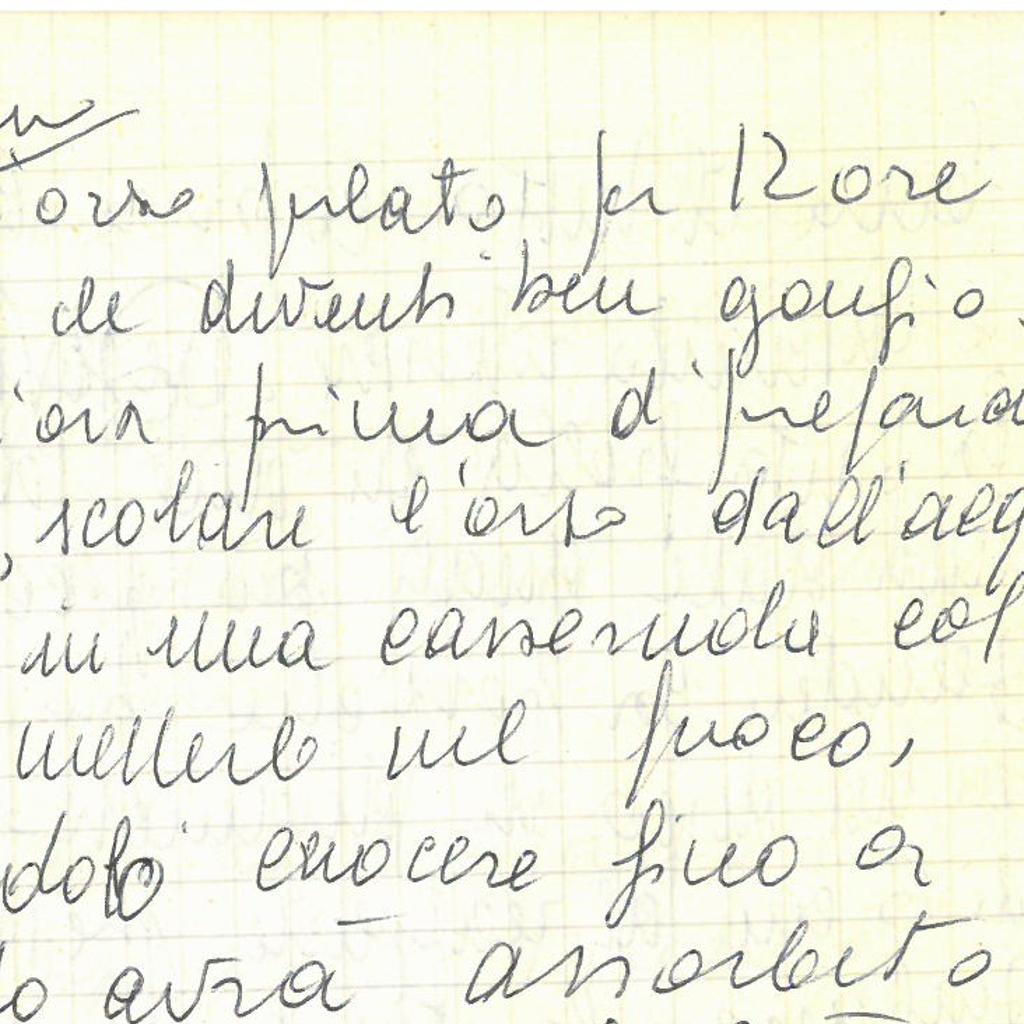 orzo pelato per 12 ore
che diventi ben gonfio.
ora prima di
scolare l'orzo
in una casseruola col
metterlo nel fuoco,
dopo cuocere fino a
avrà assorbito